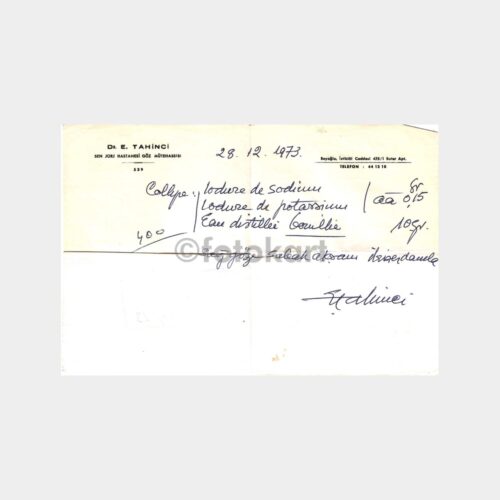 Dr. E. TAHİNCİ
SEN JORJ HASTAHESİ GÖZ MÜTEHASSISI
539
28.12.1973.
Beyoğlu, İstiklâl Caddesi 429/1 Rumeli Apt.
TELEFON : 44 12 10
Collyre: Iodure de sodium
Iodure de potassium
āā 0,15 gr
Eau distillée bouillie 10 gr.
400
©fotokart
Sabah akşam birer damla
E. Tahinci